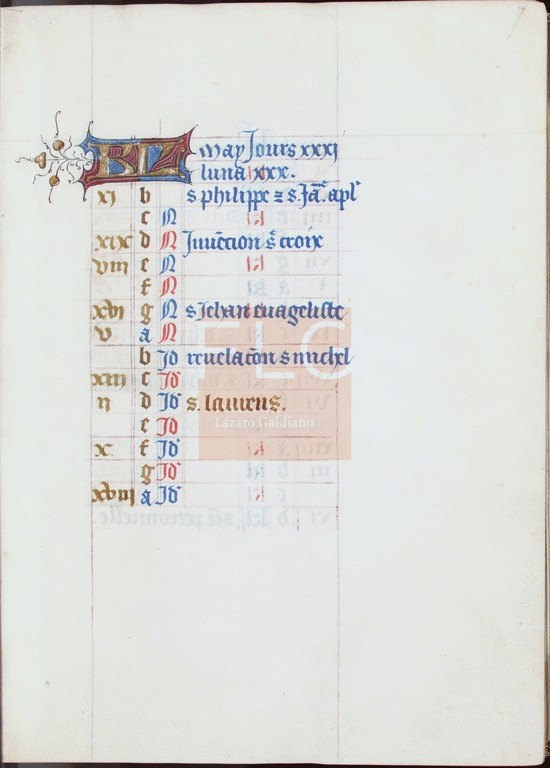 7
KL may Jours xxxj
luna xxx.
xj b s philippe z s Ja. apl
c N
xix d N Jnuẽcion s̃ croix
viij e N
f N
xvj g N s Jehan euãgeliste
v a N
b Jd reuelacõn s michel
xiij c Jd
ij d Jd s. laurens.
e Jd
x f Jd
g Jd
xviij a Jd
FLG
Lázaro Galdiano